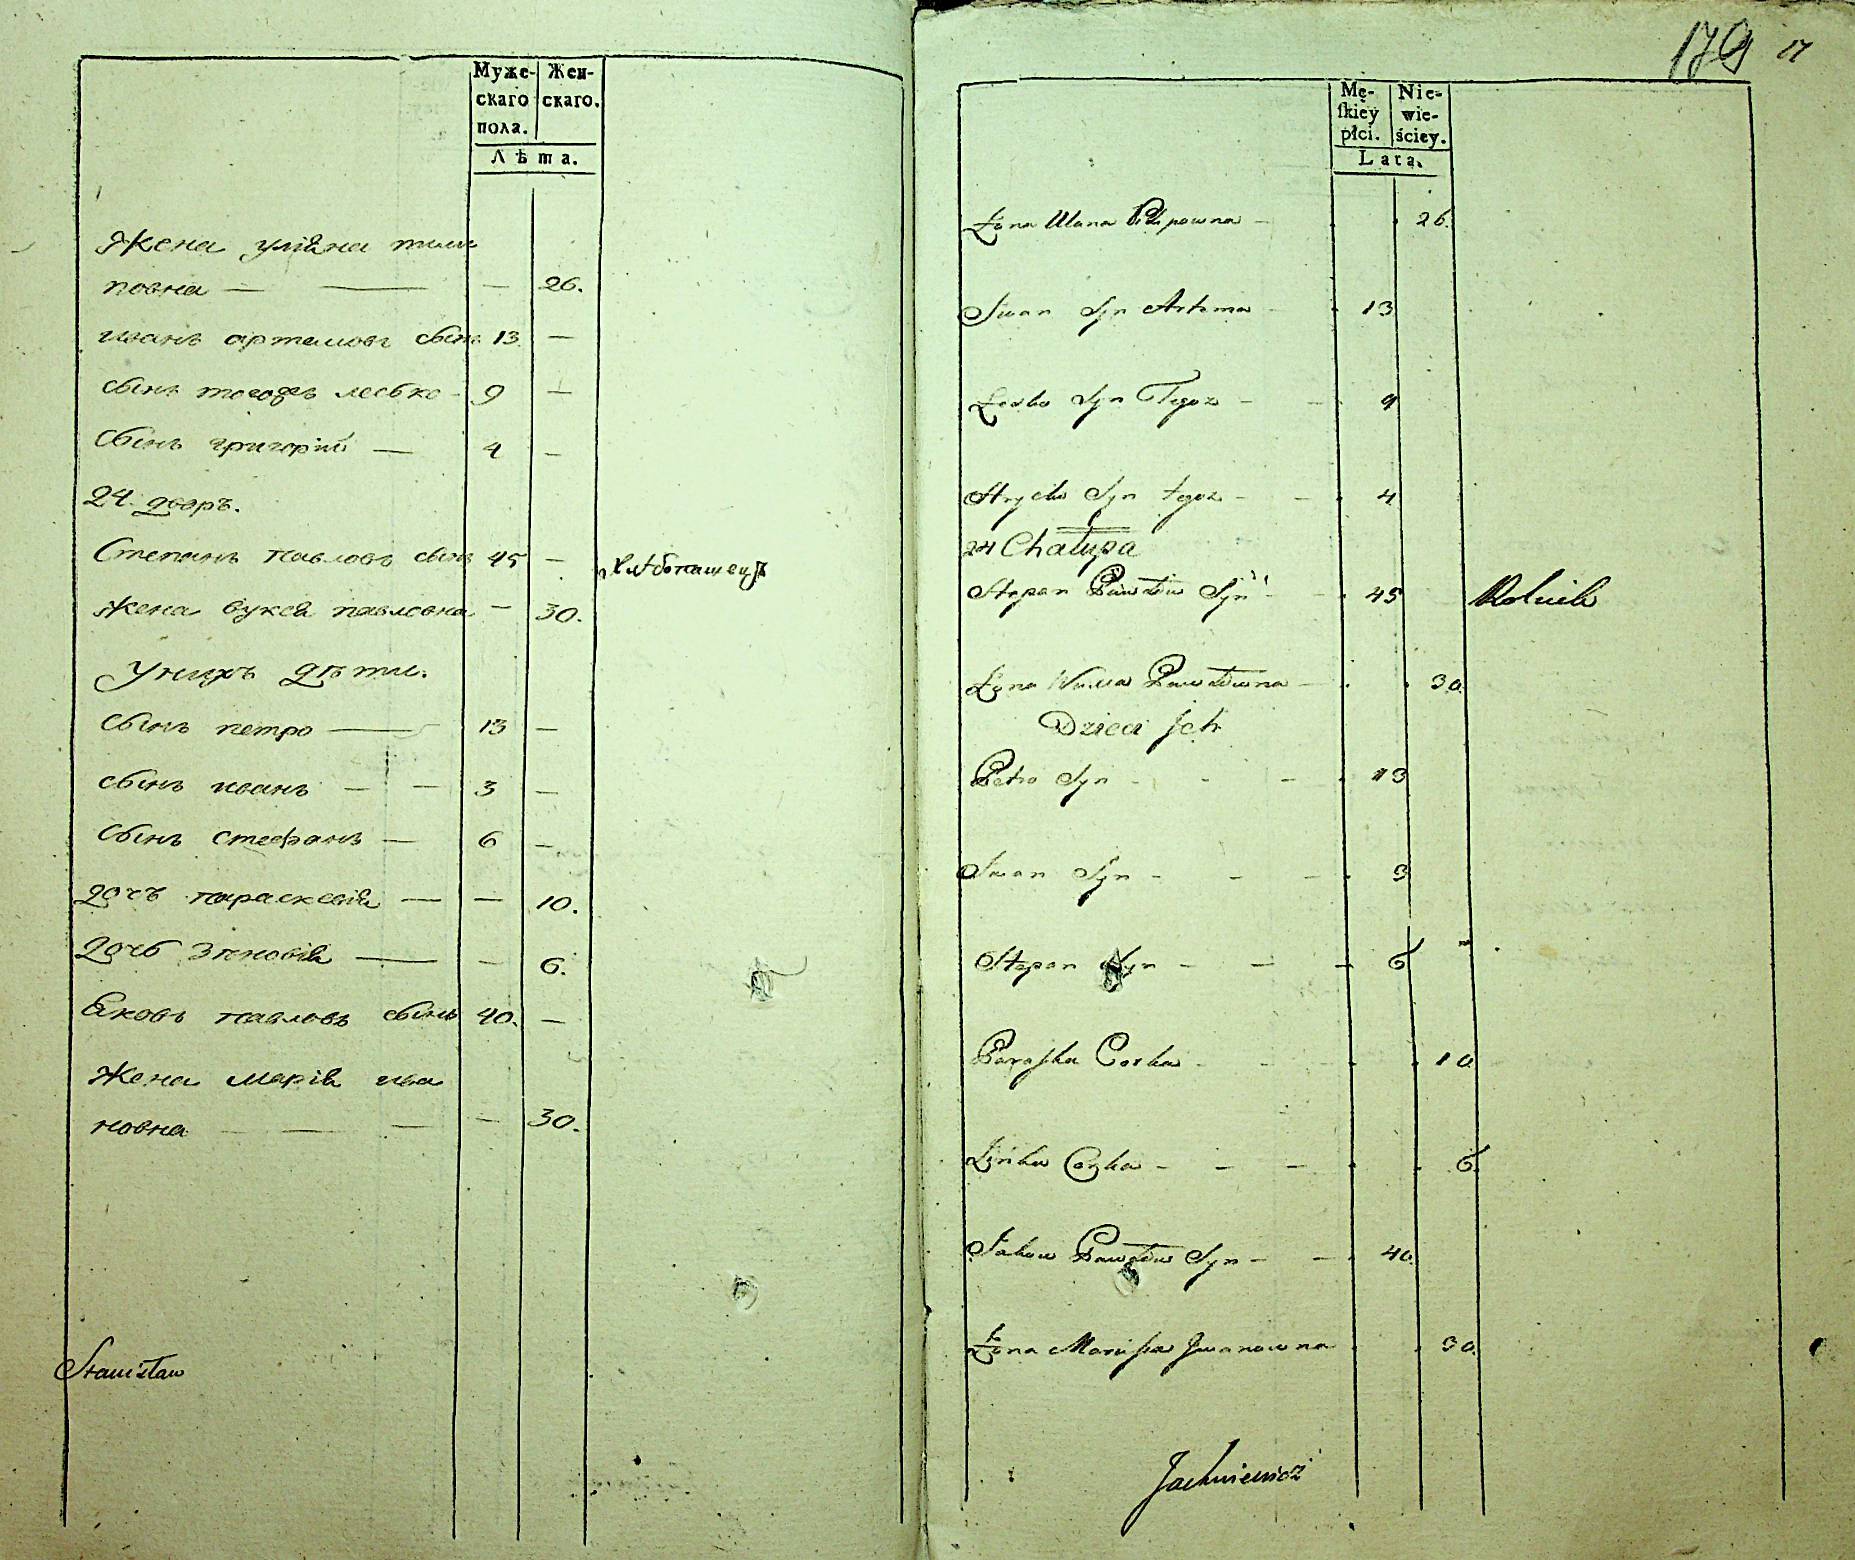 Муже-
скаго
пола.
Жен-
скаго.
Лѣта.
Жена уліяна пили
повна — — — 26.
иванъ артемовъ сынъ 13 —
сынъ тогожъ лесько - 9 —
Сынъ григорій — 4 —
24. дворъ.
Степанъ павловъ сынъ 45 — хлѣбопашецъ
жена вукся павловна — 30.
У нихъ дѣти.
сынъ петро — 13 —
сынъ иванъ — — 3 —
сынъ стефанъ — 6 —
дочъ параскевія — — 10.
дочь Зѣновія — — 6.
Яковъ павловъ сынъ 40. —
Жена марія ива
новна — — — — 30.
Stanisław
179 17
Mę-
skiey
płci.
Nie-
wie-
ściey.
Lata.
Żona Ulana - 26.
Iwan Syn Artema - 13
Lesko Syn Tegoz - - 9
Hryćko Syn tegoz - - 4
24 Chałupa
Stepan Pawłow Syn - - 45 Rolnik
Żona Pawłowna - 30.
Dzieci Ich
Petro Syn - - - 13
Iwan Syn - - - 3
Stepan Syn - - - 6
Paraska Corka - - - 10
Corka - - - 6.
Jakow Pawłow Syn - - 40.
Żona Maryska Iwanowna 30.
Jachniewicz